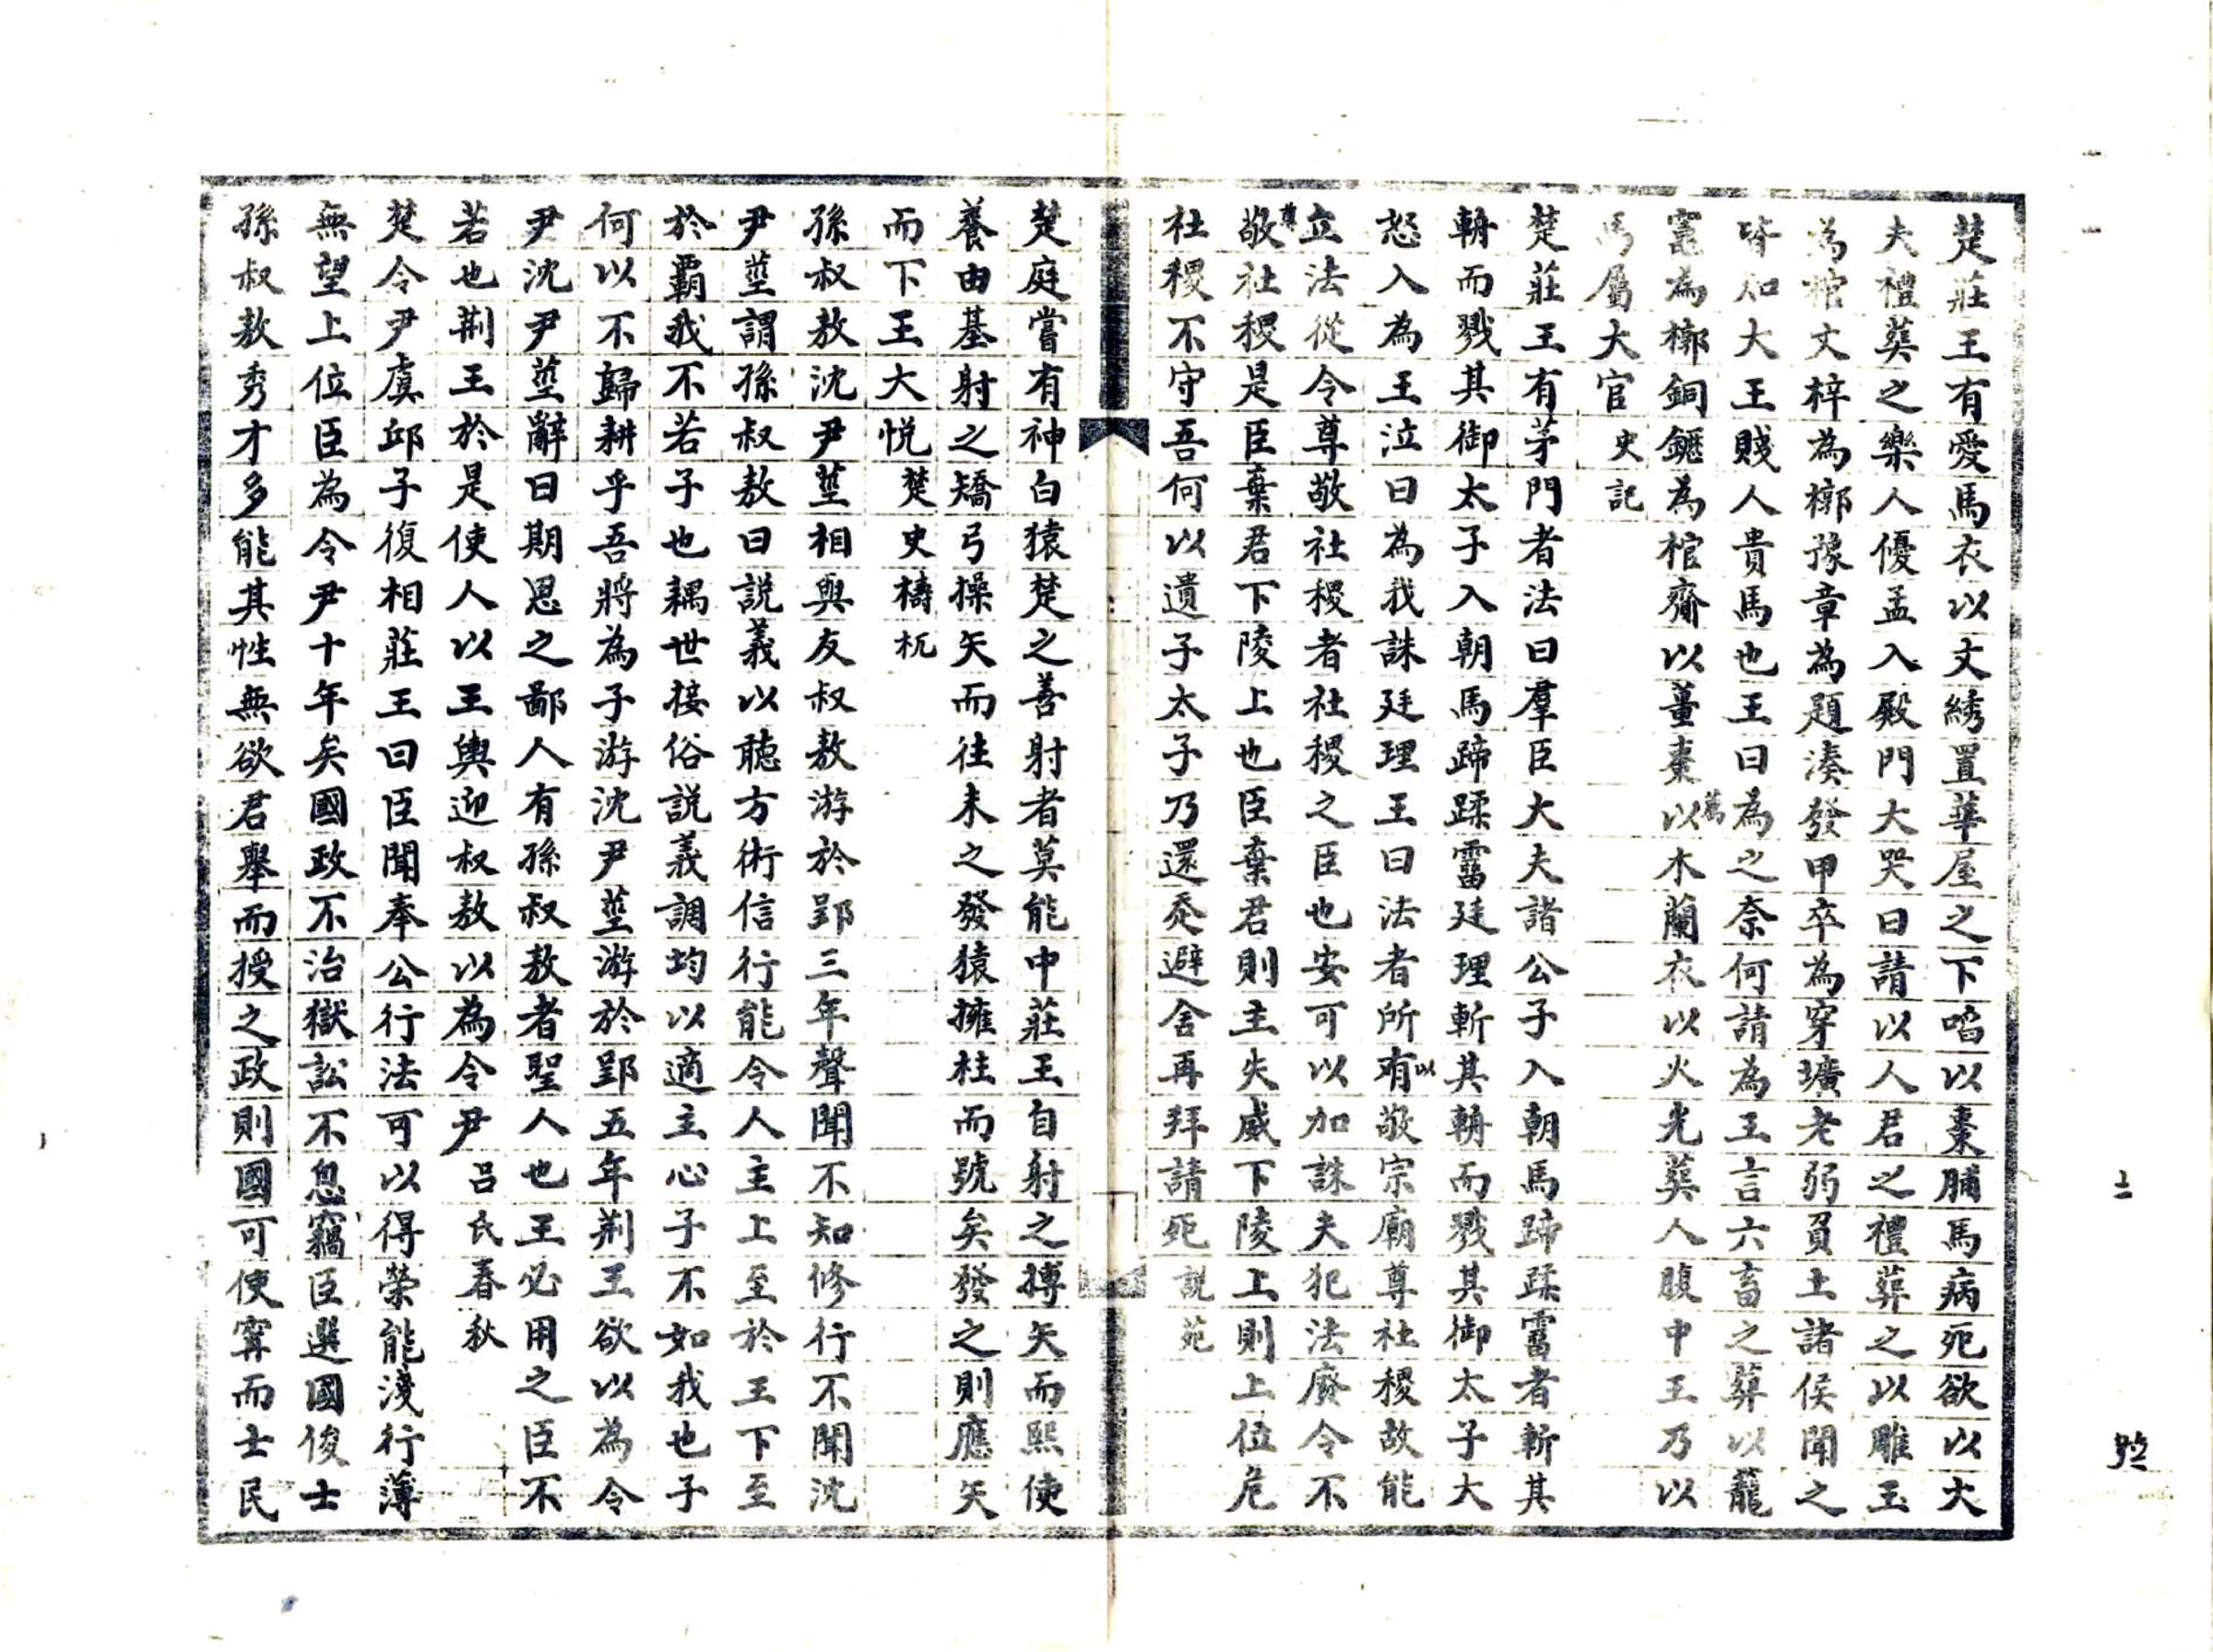 楚莊王有愛馬衣以文綉置華屋之下啗以棗脯馬病死欲以大
夫禮葬之樂人優孟入殿門大哭曰請以人君之禮葬之以雕玉
為棺文梓為槨豫章為題湊發甲卒為穿壙老弱負土諸侯聞之
皆知大王賤人貴馬也王曰為之奈何請為王言六畜之葬以壠
竈為槨銅鑩為棺齎以薑棗薦以木蘭衣以火光葬人腹中王乃以
馬屬大官 史記
楚莊王有茅門者法曰羣臣大夫諸公子入朝馬蹄蹂霤者斬其
輈而戮其御太子入朝馬蹄蹂霤廷理斬其輈而戮其御太子大
怒入為王泣曰為我誅廷理王曰法者所以敬宗廟尊社稷故能
立法從令尊敬社稷者社稷之臣也安可以加誅夫犯法廢令不
尊敬社稷是臣棄君下陵上也臣棄君則主失威下陵上則上位危
社稷不守吾何以遺子太子乃還走避舍再拜請死 説苑
楚庭嘗有神白猿楚之善射者莫能中莊王自射之搏矢而熙使
養由基射之矯弓操矢而往未之發猿擁柱而號矣發之則應矢
而下王大悦 楚史檮杌
孫叔敖沈尹莖相與友叔敖游於郢三年聲聞不知修行不聞沈
尹莖謂孫叔敖曰説義以聽方術信行能令人主上至於王下至
於霸我不若子也耦世接俗説義調均以適主心子不如我也子
何以不歸耕乎吾將為子游沈尹莖游於郢五年荆王欲以為令
尹沈尹莖辭曰期思之鄙人有孫叔敖者聖人也王必用之臣不
若也荆王於是使人以王輿迎叔敖以為令尹 吕氏春秋
楚令尹虞邱子復相莊王曰臣聞奉公行法可以得榮能淺行薄
無望上位臣為令尹十年矣國政不治獄訟不息竊臣選國俊士
孫叔敖秀才多能其性無欲君舉而授之政則國可使寧而士民